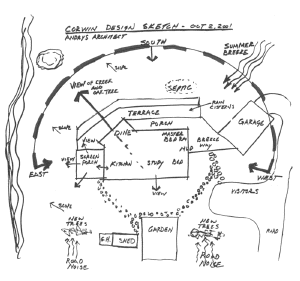 CORWIN DESIGN SKETCH - OCT 2, 2001
ANDRYS ARCHITECT
SOUTH
SUMMER
BREEZE
SLOPE
VIEW OF CREEK
AND
OAK TREE
SEPTIC
RAIN
CISTERNS
TERRACE
PORCH
GARAGE
SLOPE
DINE
MASTER
BDRM
BREEZE
WAY
VIEW
MUD
VIEW
SCREEN
PORCH
KITCHEN
STUDY
BED
EAST
WEST
VIEW
VISITORS
SLOPE
NEW
TREES
NEW
TREES
GARDEN
G.H.
SHED
ROAD
ROAD
NOISE
ROAD
NOISE